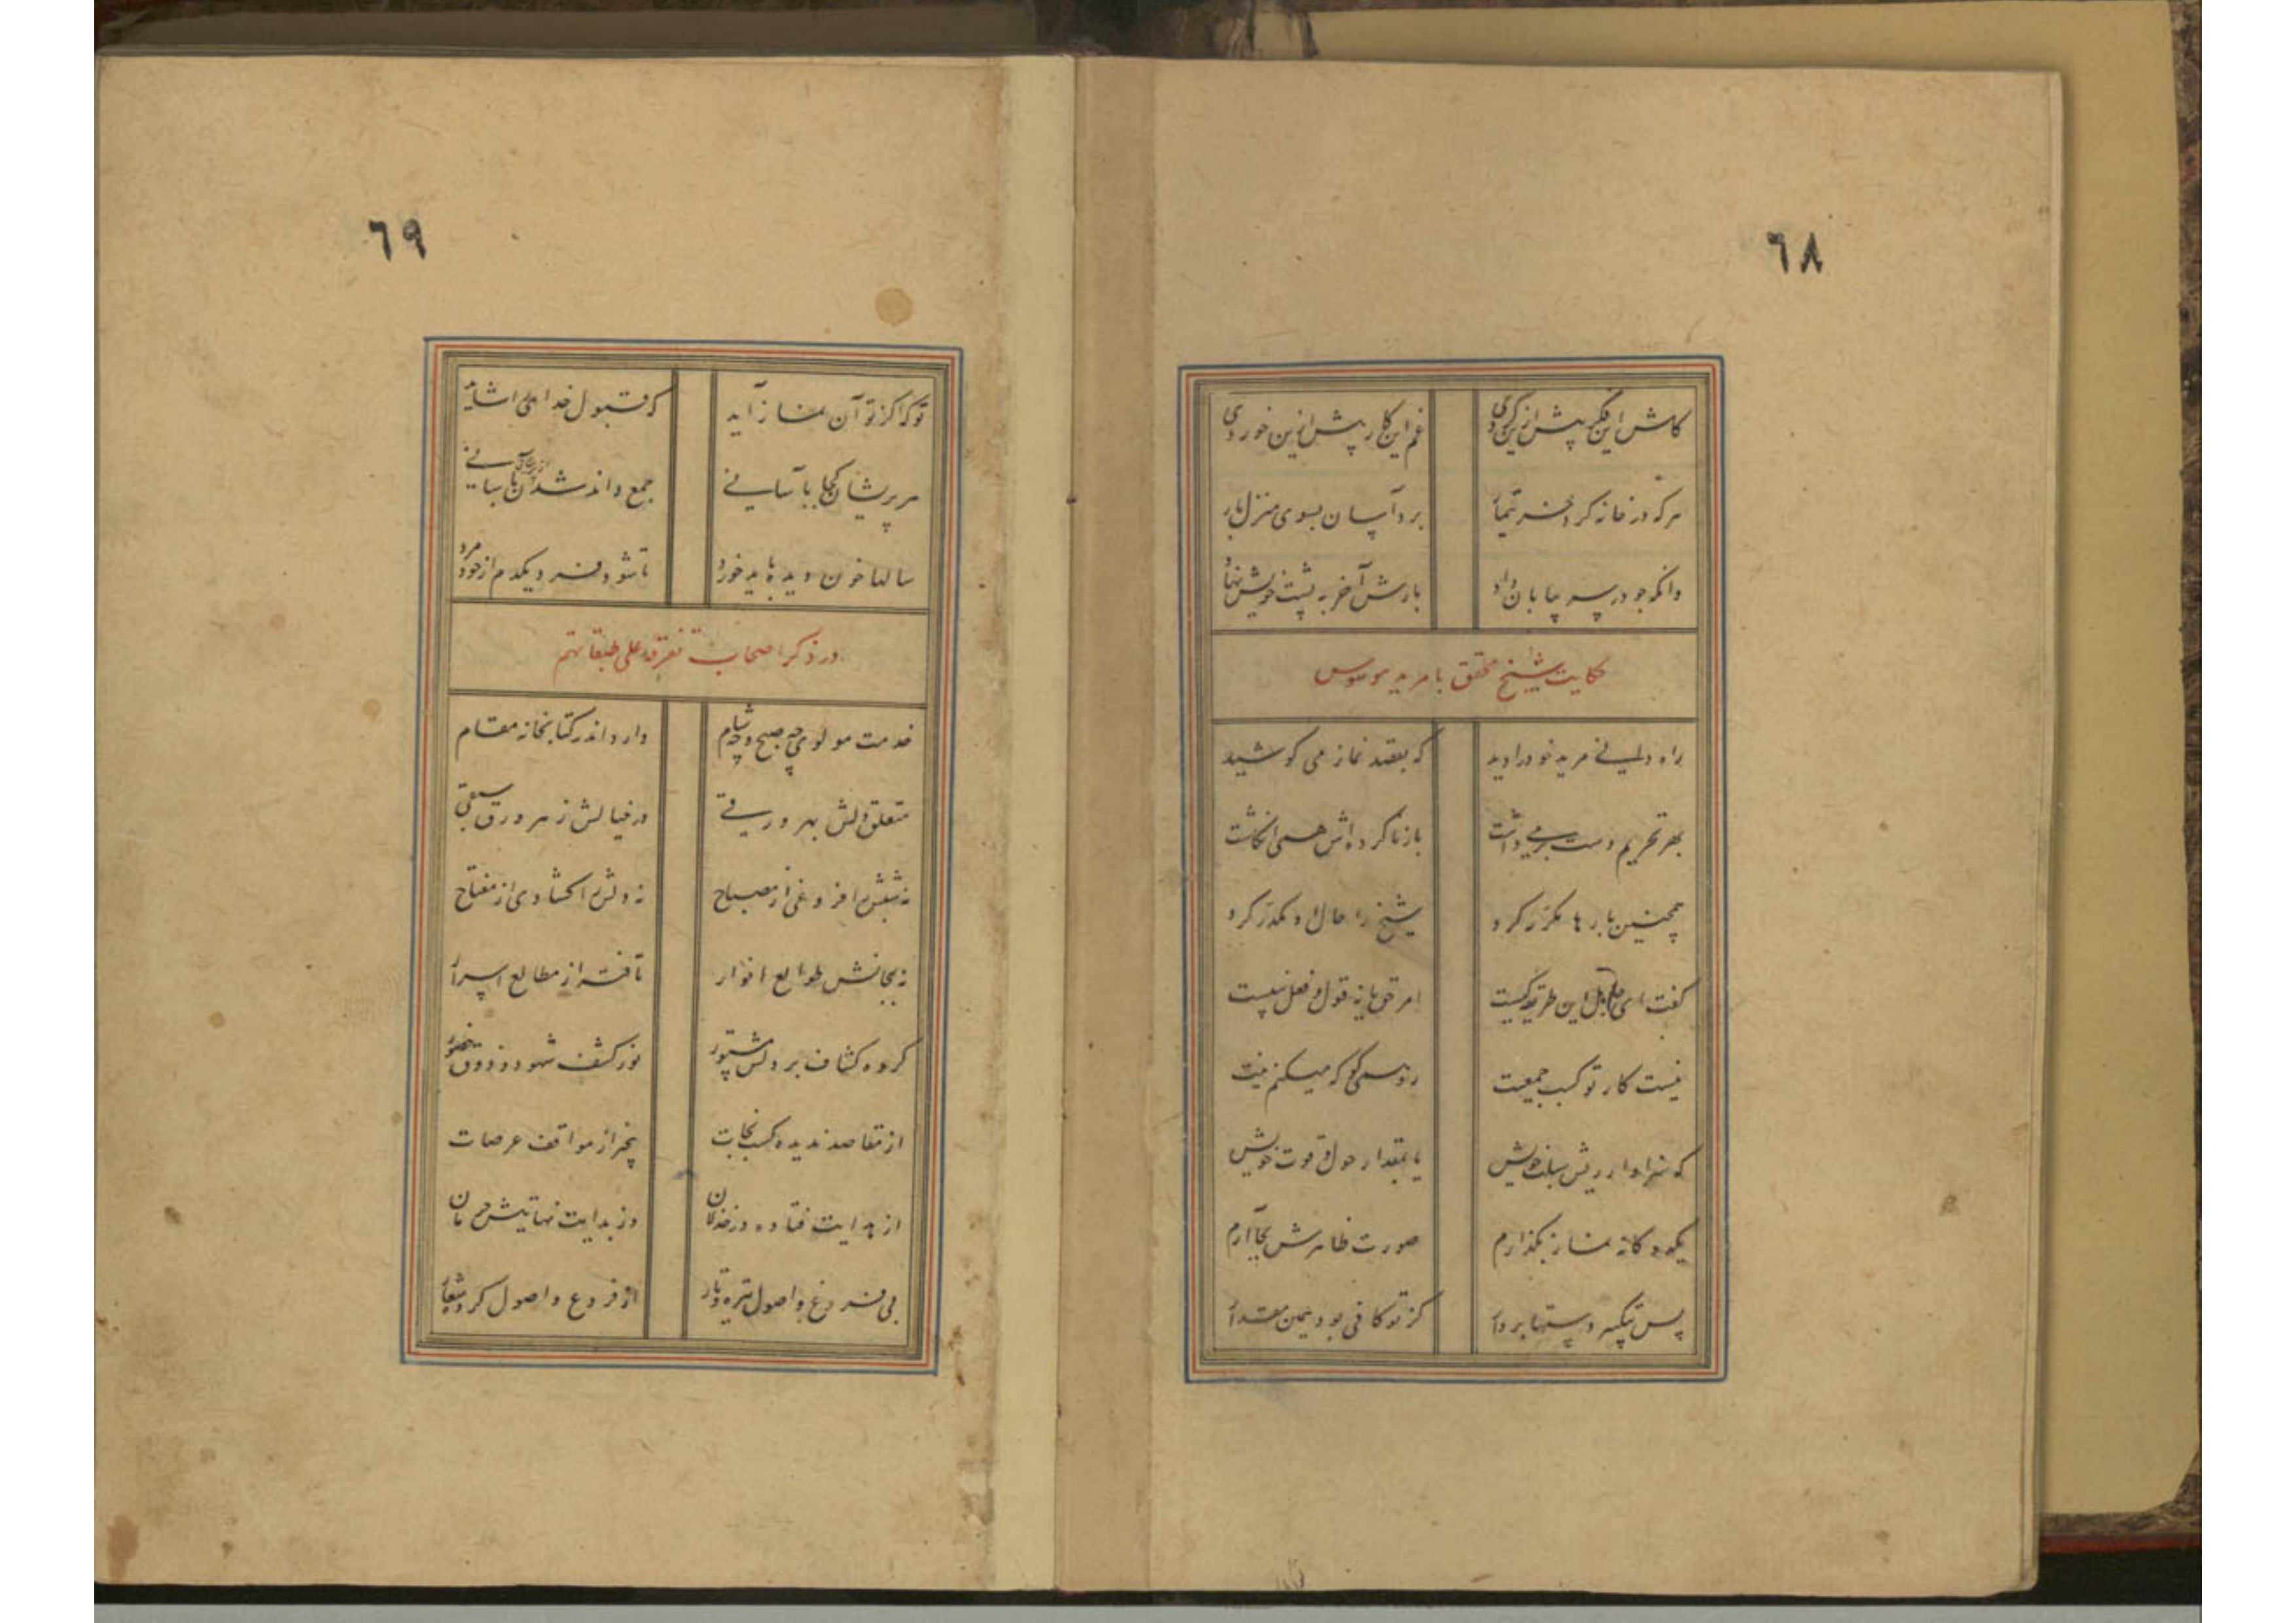 ٦٨
کاش این فکر پیش ازین کردی غم این کار پیش ازین خوردی
هر که در خانه کرد خر تیمار برد آسان بسوی منزل بار
وانکه جو در سر بیابان داد بارش آخر به پشت خویش نهاد
حکایت شیخ محقق با مرید موسوس
راه دانی مرید خود را دید که بعقد نماز می کوشید
بهر تحریم دست برمی داشت باز ناکرده اش همی انکاشت
همچنین بارها مکرر کرد شیخ را حال او مکدر کرد
گفت ای جاهل این طریقه کیست امر حق یا نه قول و فعل نبیست
نیست کار تو کسب جمعیت رو همی کو که میکنم نیت
که سزاوار ریش سبلت خویش یا بمقدار حول و قوت خویش
یکدوکانه نماز بکذارم صورت ظاهرش بجا آرم
پس بتکبیر دستها بردار کز تو کافی بود همین مقدار
٦٩
تو که اکز تو آن نماز آید که قبول خدای را شاید
هر پریشان کجا بآسانی جمع داند شدن
سالها خون دیده باید خورد تا شود فرد یکدم از خود مرد
در ذکر اصحاب تفرقه علی طبقاتهم
خدمت مولوی چه صبح و چه شام دارد اندر کتابخانه مقام
متعلق دلش بهر ورقی در خیالش ز هر ورق سبقی
نه شبش را فروغی از مصباح نه دلش را کشادی از مفتاح
نه بجانش طوالع انوار تافته از مطالع اسرار
کرده کشاف بر دلش مستور نور کشف شهود و ذوق حضور
از مقاصد ندیده کسب نجات بیخبر از مواقف عرصات
از هدایت فتاده در خذلان وز بدایت نهایتش حرمان
بی فروغ وصول تیره و تار از فروع و اصول کرده شعار